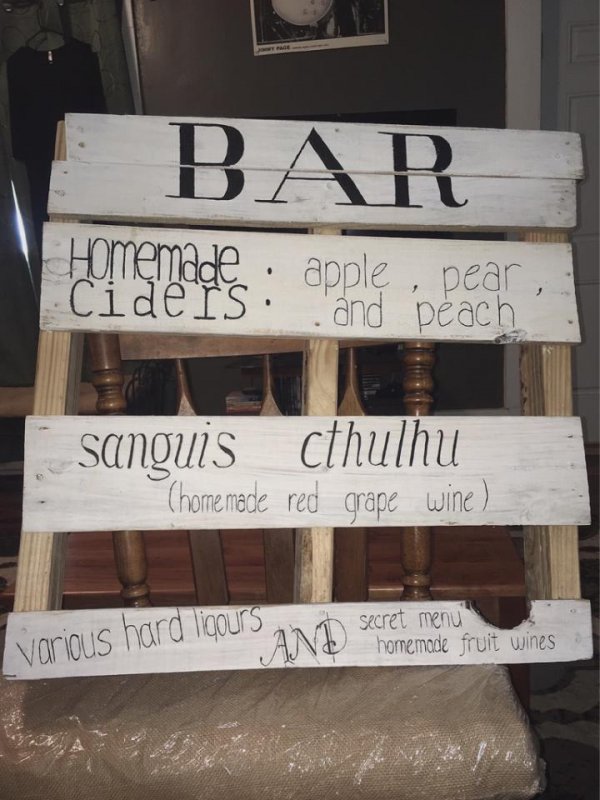 JIMMY PAGE
BAR
Homemade Ciders: apple, pear,
and peach
sanguis cthulhu
(homemade red grape wine)
various hard liqours AND secret menu
homemade fruit wines